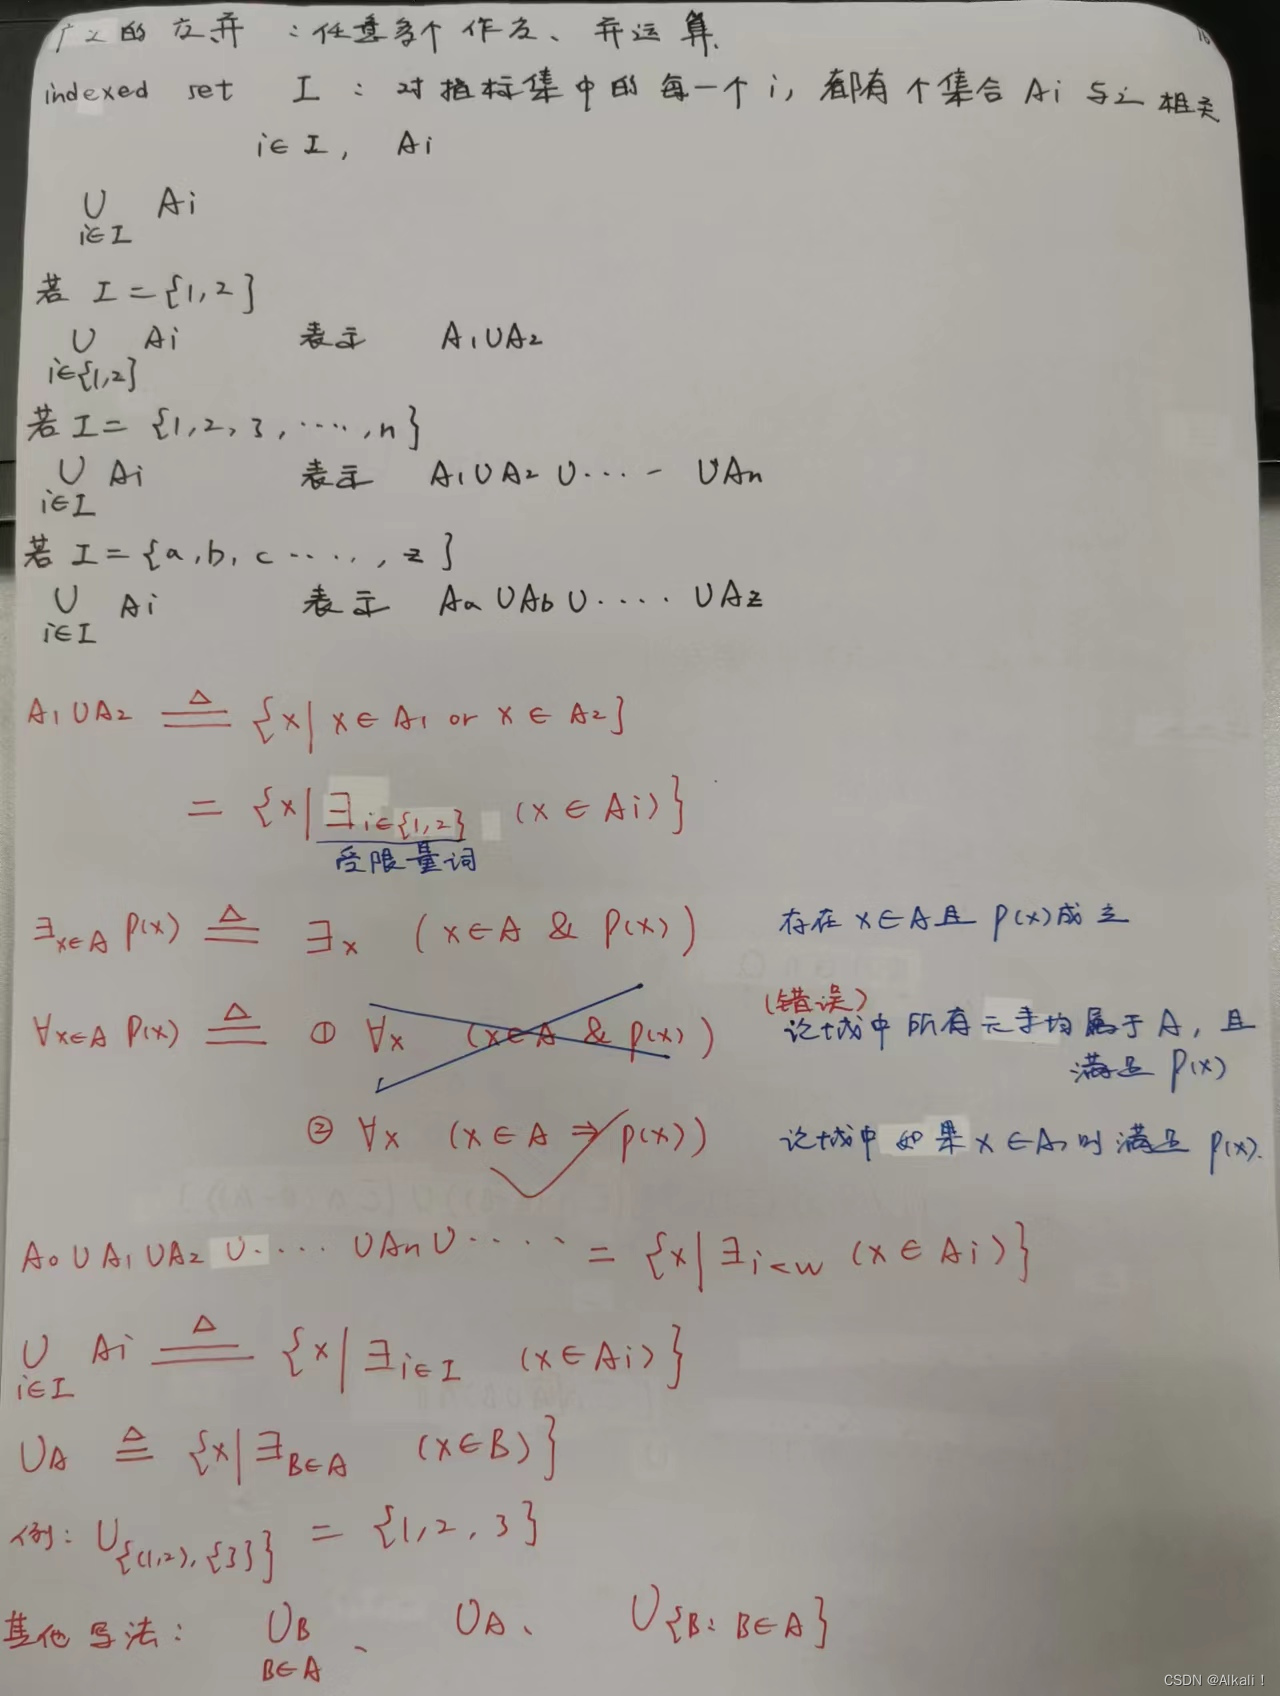 广义的交并：任意多个作交、并运算.
indexed set I：对指标集中的每一个i，都有个集合 Ai 与i相关
i∈I， Ai
∪ Ai
i∈I
若 I={1,2}
∪ Ai 表示 A₁∪A₂
i∈{1,2}
若 I={1,2,3,·····,n}
∪ Ai 表示 A₁∪A₂∪···- ∪An
i∈I
若 I={a,b,c·····,z}
∪ Ai 表示 Aa∪Ab∪····∪Az
i∈I
A₁∪A₂ ≜ {x| x∈A₁ or x∈A₂}
= {x|∃i∈{1,2} (x∈Ai)}
受限量词
∃x∈A P(x) ≜ ∃x (x∈A & P(x)) 存在 x∈A且 P(x)成立
(错误)
∀x∈A P(x) ≜ ① ∀x (x∈A & P(x)) 论域中所有元素均属于A，且
满足 P(x)
② ∀x (x∈A ⇒ P(x)) 论域中如果x∈A,时满足 P(x).
A₀∪A₁∪A₂∪····∪An∪····· = {x|∃i<w (x∈Ai)}
∪ Ai ≜ {x|∃i∈I (x∈Ai)}
i∈I
∪A ≜ {x|∃B∈A (x∈B)}
例：∪{(1,2),{3}} = {1,2,3}
其他写法： ∪B 、 ∪A、 ∪{B: B∈A}
B∈A
CSDN @Alkali！